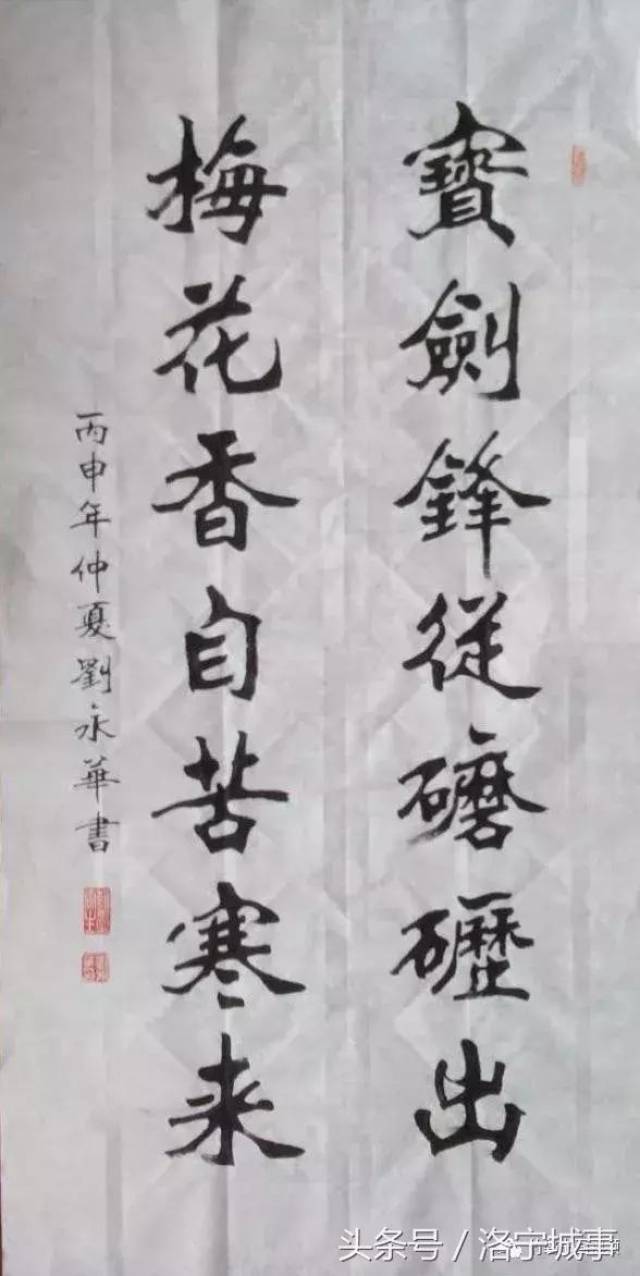 寶劍鋒從礳礰出
梅花香自苦寒来
丙申年仲夏劉永華書
头条号／洛宁城事